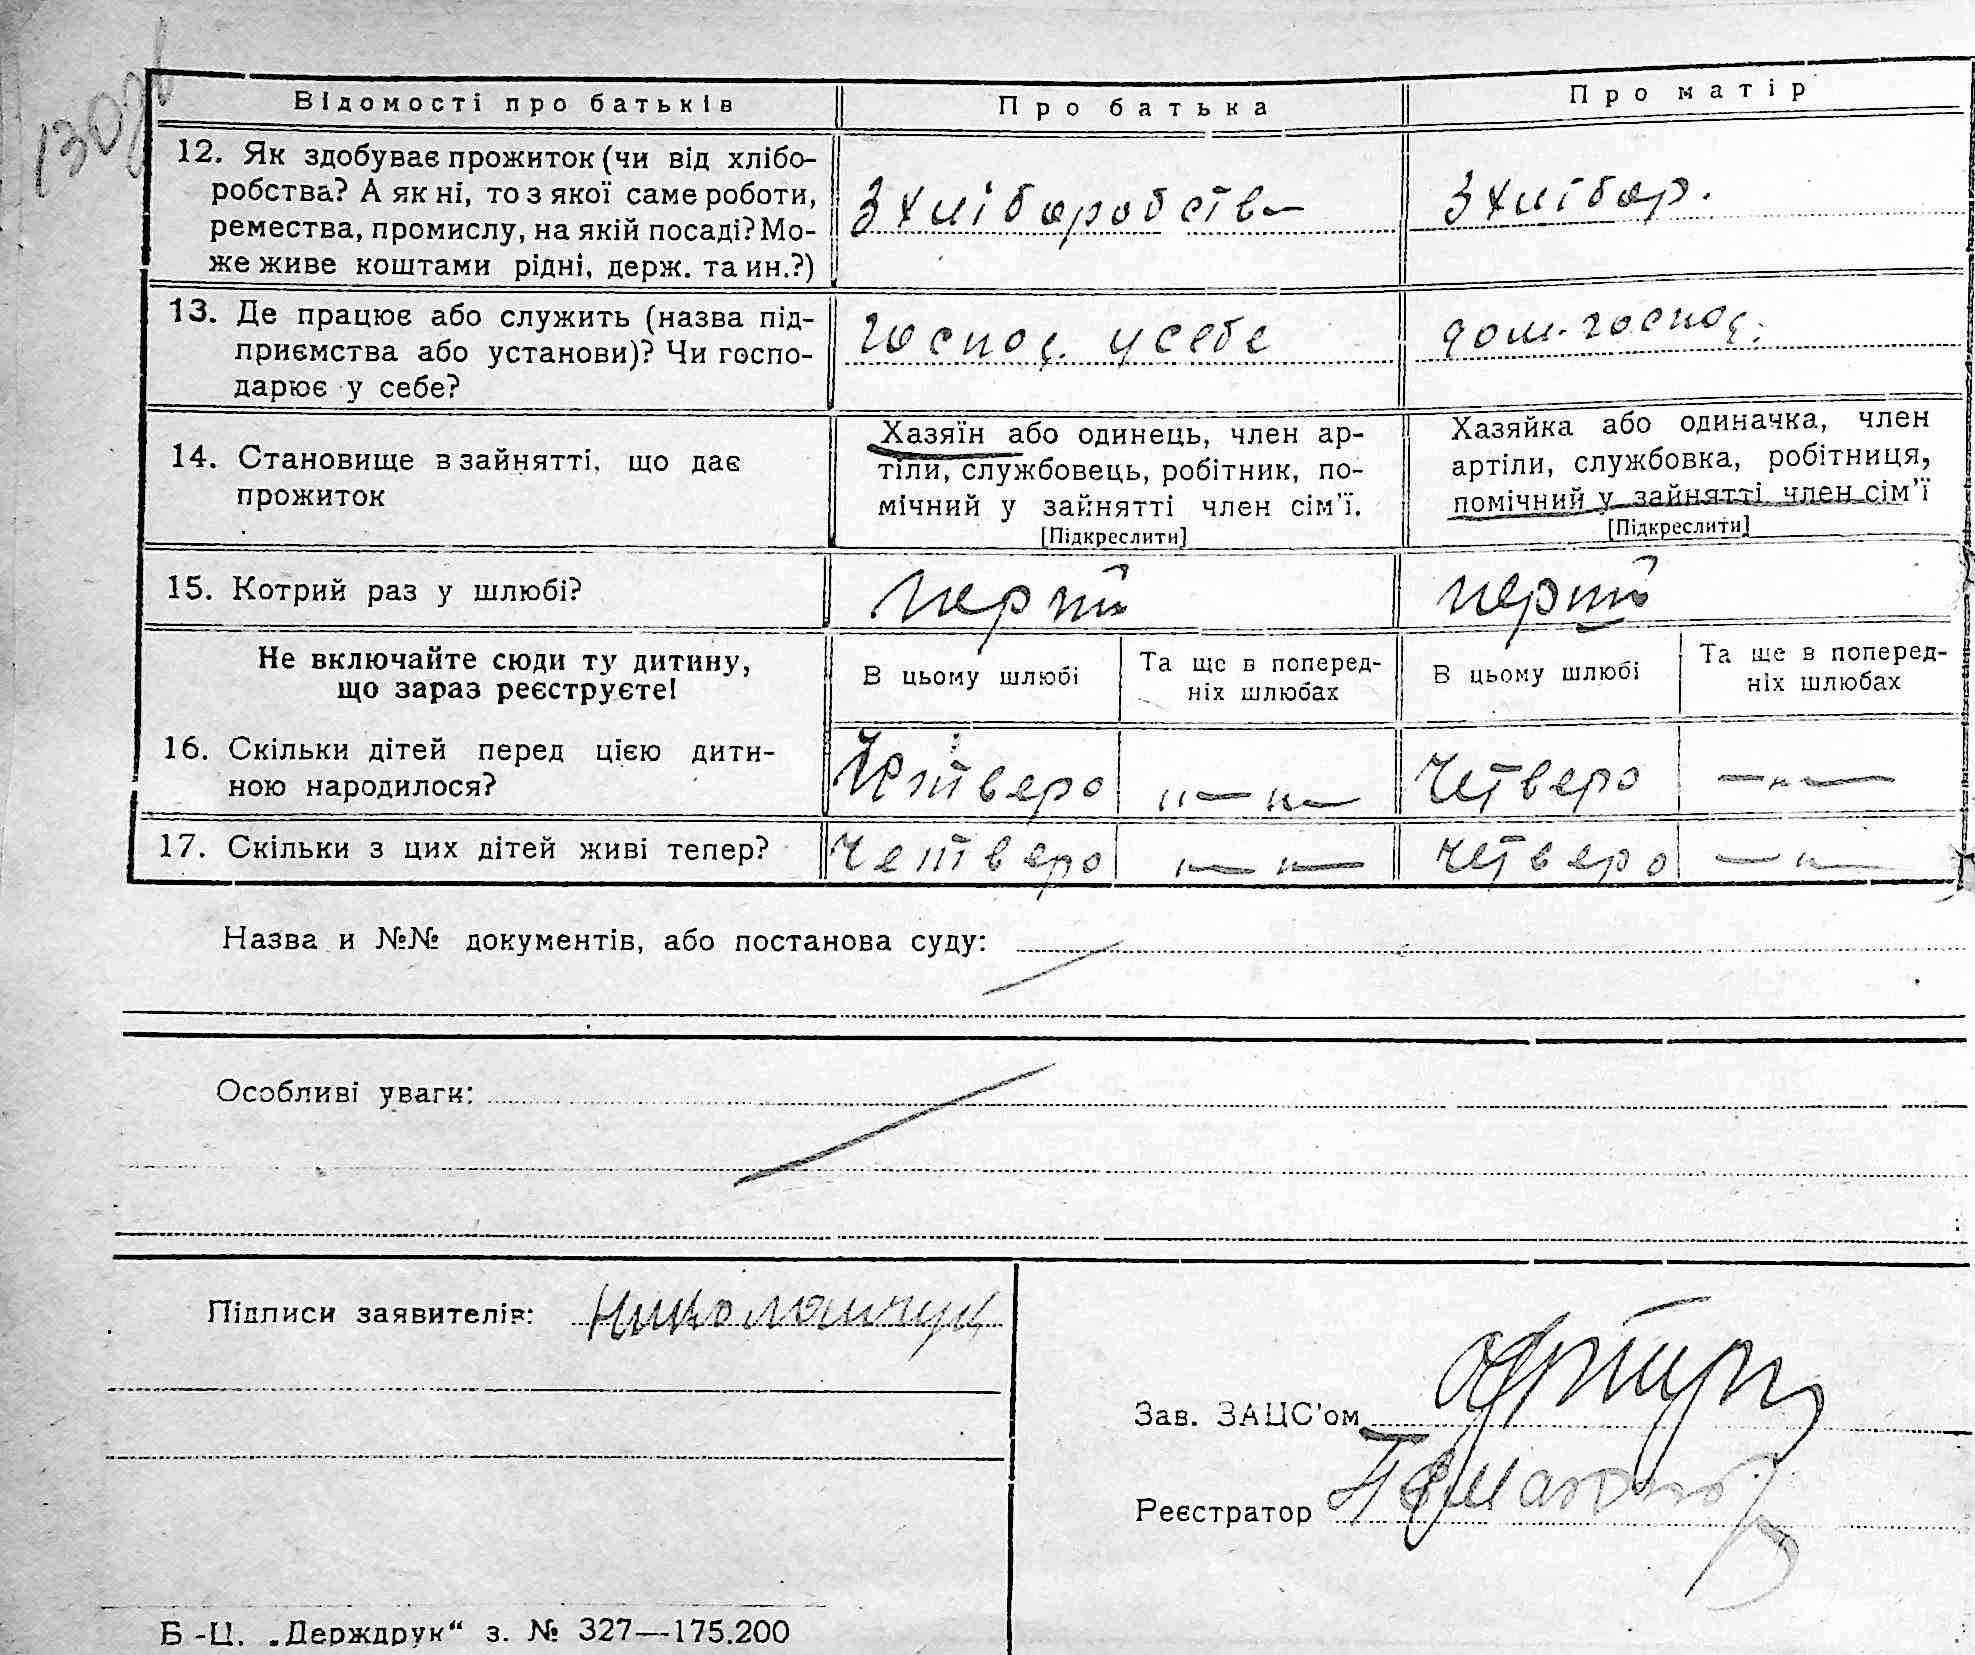 130
Відомості про батьків
Про батька
Про матір
12. Як здобуває прожиток (чи від хлібо-
робства? А як ні, то з якої саме роботи,
ремества, промислу, на якій посаді? Мо-
же живе коштами рідні, держ. та ин.?)
З хліборобства
З хлібор.
13. Де працює або служить (назва під-
приємства або установи)? Чи госпо-
дарює у себе?
Господ. у себе
дом. господ.
14. Становище в зайнятті, що дає
прожиток
Хазяїн або одинець, член ар-
тіли, службовець, робітник, по-
мічний у зайнятті член сім'ї.
[Підкреслити]
Хазяйка або одиначка, член
артіли, службовка, робітниця,
помічний у зайнятті член сім'ї
[Підкреслити]
15. Котрий раз у шлюбі?
перший
перший
Не включайте сюди ту дитину,
що зараз реєструєте!
В цьому шлюбі
Та ще в поперед-
ніх шлюбах
В цьому шлюбі
Та ще в поперед-
ніх шлюбах
16. Скільки дітей перед цією дити-
ною народилося?
Четверо
"—"—
Четверо
—"—
17. Скільки з цих дітей живі тепер?
четверо
"—"—
четверо
—"—
Назва и №№ документів, або постанова суду:
Особливі уваги:
Підписи заявителів: Николайчук
Зав. ЗАЦС'ом
Реєстратор
Б-Ц. „Держдрук“ з. № 327—175.200